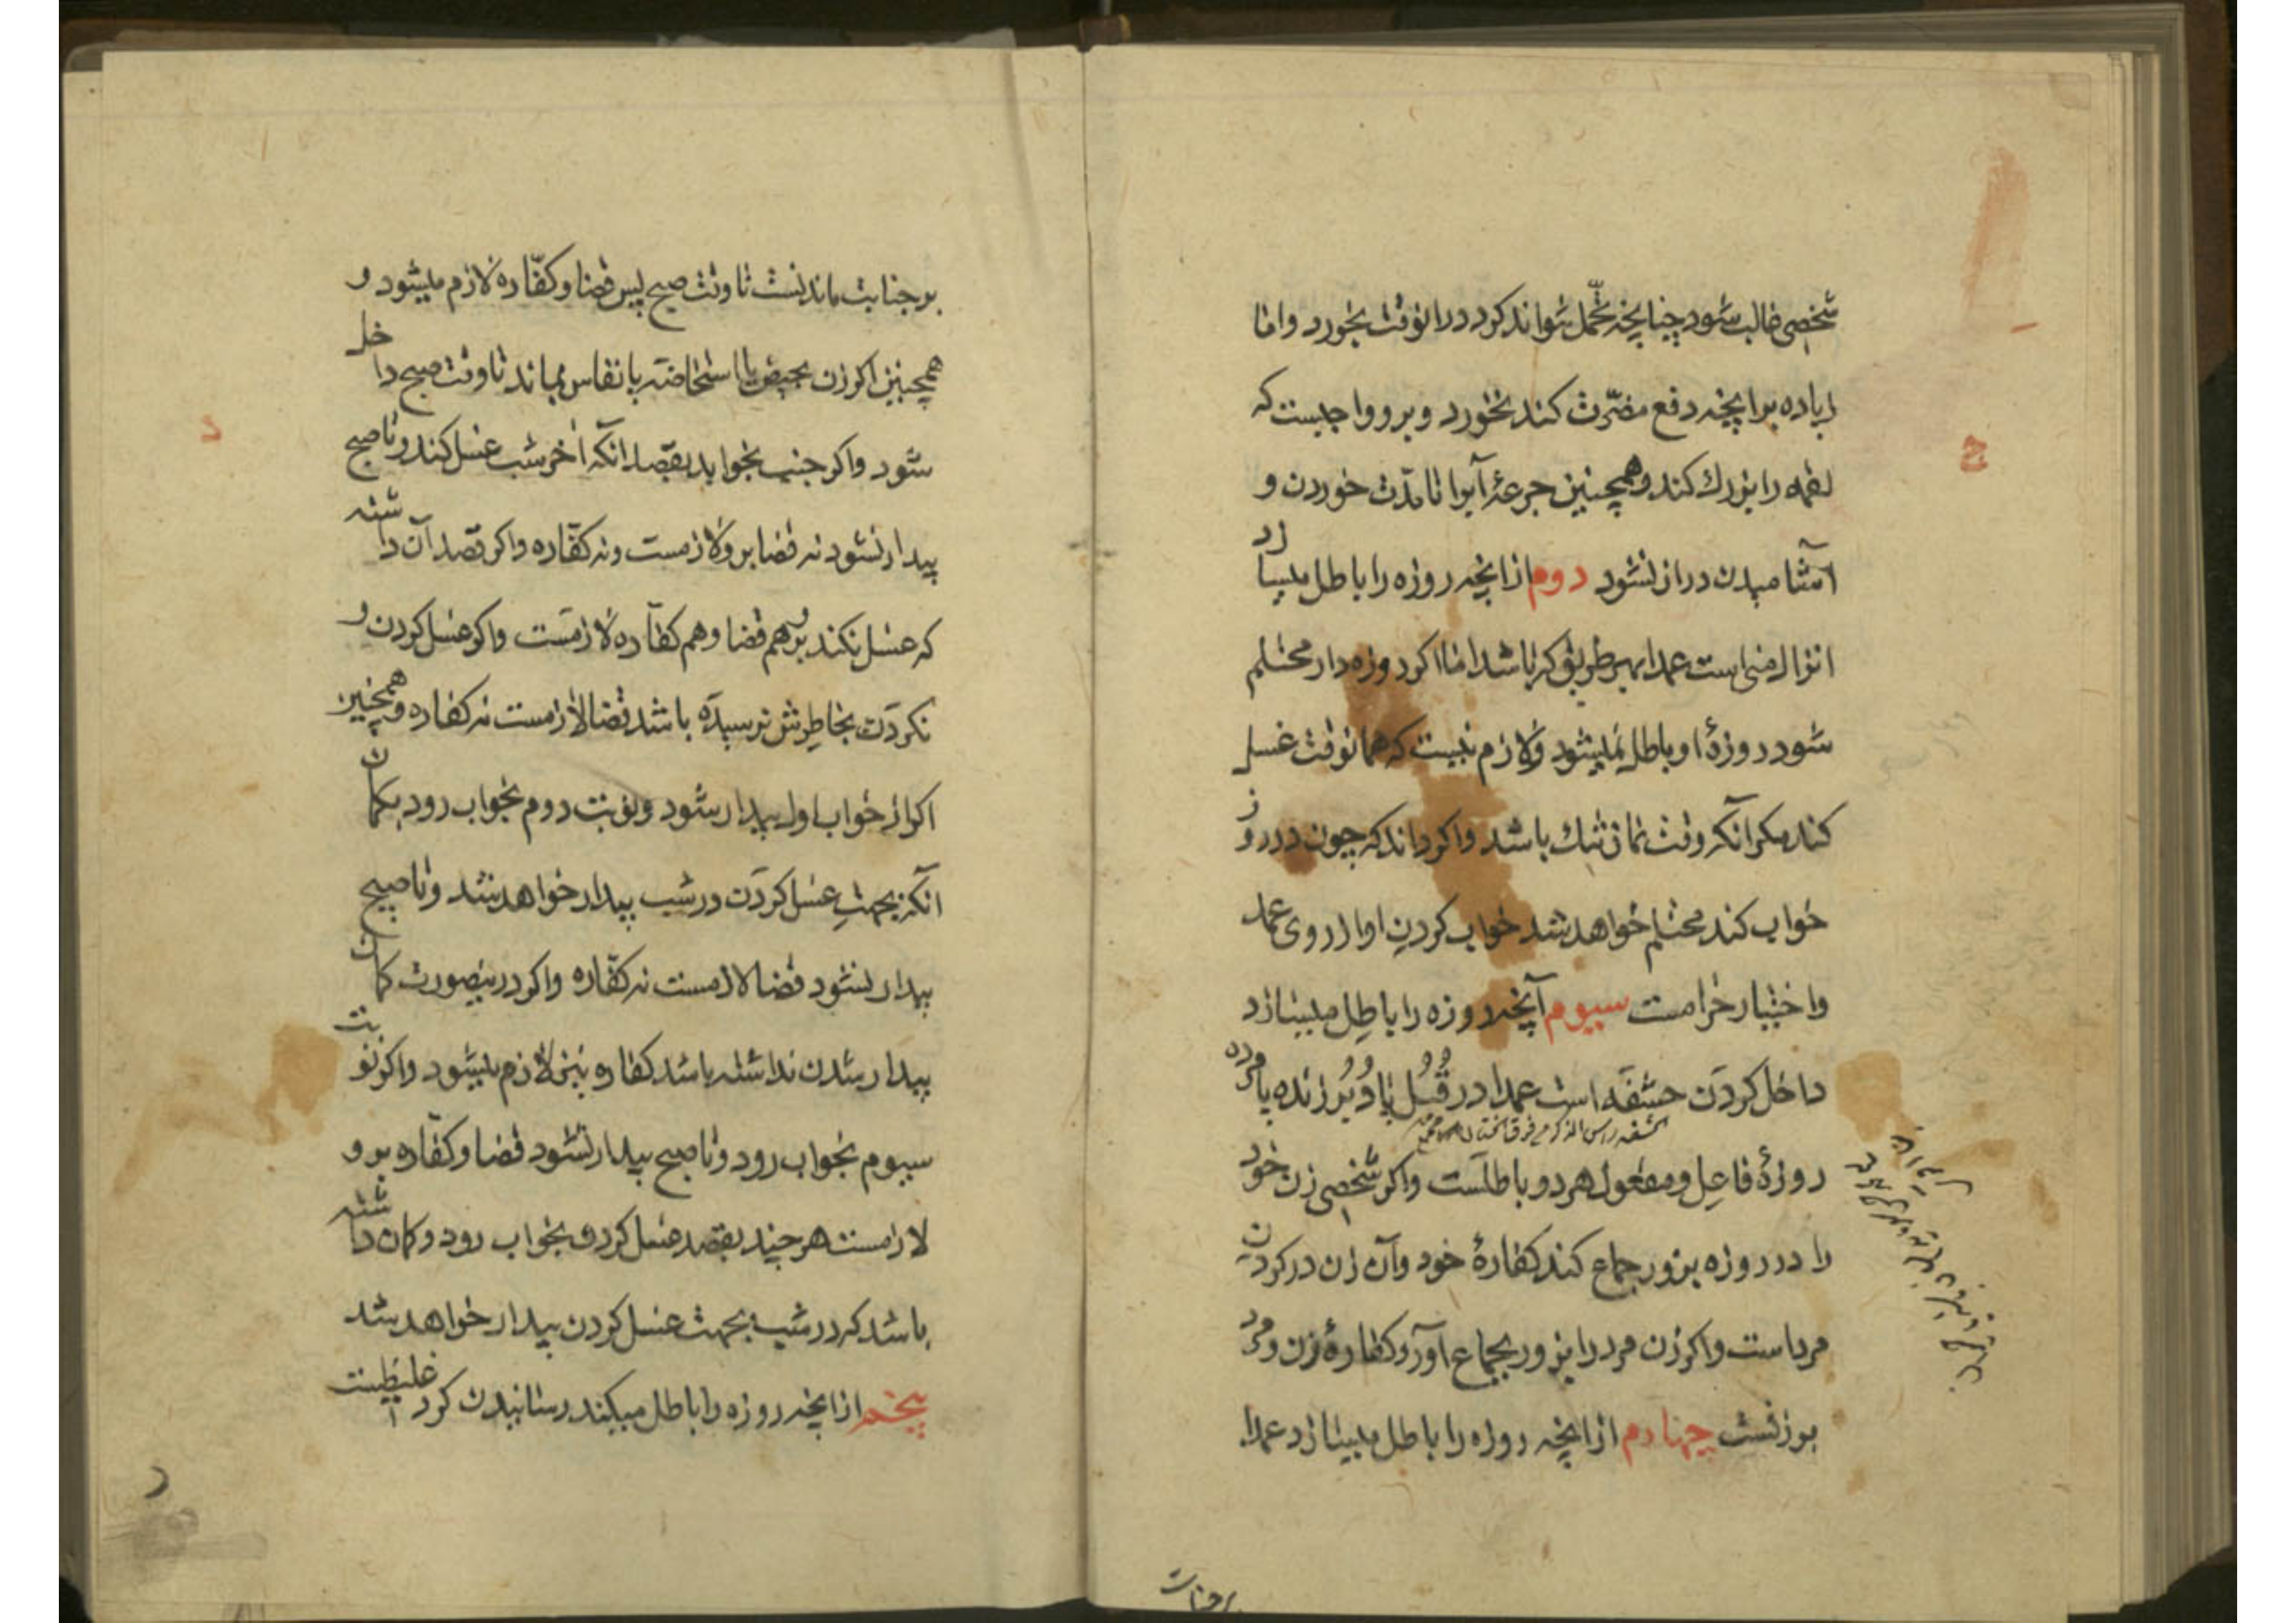 شخصی غالب شود چنانچه تحمّل نتواند کرد در انوقت بخورد و اما
زیاده بر انچه دفع مضرّت کند نخورد و برو واجبست که
لقمه را بزرك کند و همچنین جرعۀ آبرا تا مدّت خوردن و
آشامیدن دراز نشود دوم از انچه روزه را باطل میسازد
انزال منی است عمدا بهر طریق که باشد اما اکر روزه دار محتلم
شود روزۀ او باطل نمیشود و لازم نیست که همانوقت غسل
کند مکر آنکه وقت نماز تنك باشد و اکر داند که چون در روز
خواب کند محتلم خواهد شد خواب کردن او از روی عمد
و اختیار حرامست سیوم آنچه روزه را باطل میسازد
داخل کردن حشفه است عمدا در قُبُل یا دُبُر زنده یا مرده
الحشفه راس الذکر من فوق الختان
روزۀ فاعل و مفعول هر دو باطلست و اکر شخصی زن خود
را در روزه بزور جماع کند کفارۀ خود و آن زن در کردن
مرد است و اکر زن مرد را بزور بجماع آورد کفارۀ زن و مرد
بر زنست چهارم از انچه روزه را باطل میسازد عمدا
بر جنابت
بر جنابت ماندنست تا وقت صبح پس قضا و کفّاره لازم میشود و
همچنین اکر زن بحیض یا استحاضه یا نفاس بماند تا وقت صبح داخل
شود و اکر جنب بخوابد بقصد انکه آخر شب غسل کند و تا صبح
بیدار نشود نه قضا بر و لازمست و نه کفّاره و اکر قصد آن داشته
که غسل نکند برو هم قضا و هم کفاره لازمست و اکر غسل کردن و
نکردن بخاطرش نرسیده باشد قضا لازمست نه کفاره و همچنین
اکر از خواب اول بیدار شود و نوبت دوم بخواب رود بکمان
آنکه بجهت غسل کردن در شب بیدار خواهد شد و تا صبح
بیدار نشود قضا لازمست نه کفّاره و اکر درینصورت کمان
بیدار شدن نداشته باشد کفاره نیز لازم میشود و اکر نوبت
سیوم بخواب رود و تا صبح بیدار نشود قضا و کفّاره برو
لازمست هر چند بقصد غسل کردن بخواب رود و کمان داشته
باشد که در شب بجهت غسل کردن بیدار خواهد شد
پنجم از انچه روزه را باطل میکند رسانیدن کرد غلیظست